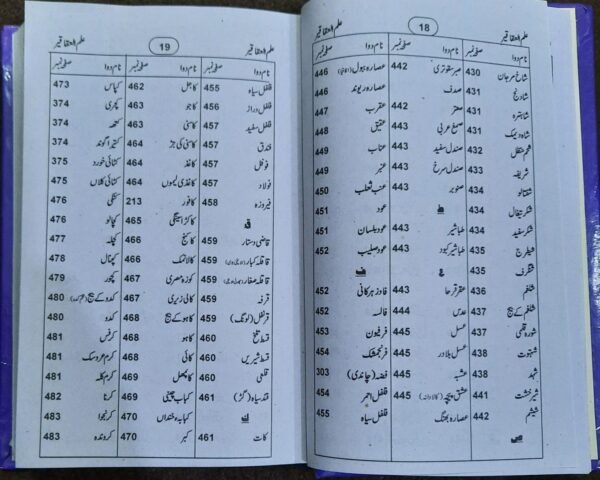 علم العقاقیر
18
نام دوا صفحہ نمبر
شاخ مرجان 430
شادنج 431
شاہترہ 431
شاہ دیمک 431
432
شریفہ 433
شفتالو 434
شکر تیغال 434
شکر سفید 434
شیطرج 435
شنگرف 435
شلغم 436
شلغم کے بیج 437
شورہ قلمی 437
شہتوت 438
شہد 438
شیرخشت 441
شیشم 442
ص
نام دوا صفحہ نمبر
442
صدف
صعتر 442
صمغ عربی 443
صندل سفید 443
صندل سرخ 443
صنوبر 443
ط
طباشیر 443
طباشیر کبود 443
ع
عقرقرحا 443
عدس 444
عسل 445
عسل بلادر 445
عشبہ 445
عشق پیچہ 445
عصارہ بھنگ
نام دوا صفحہ نمبر
عصارہ ببول 446
عصارہ ریوند 446
عقرب 447
عقیق 448
عناب 449
عنبر 449
عنب ثعلب 450
عود 451
عود بلسان 451
عود صلیب 452
ف
452
فالسہ 452
فرفیون 453
فرنجمشک 454
فضہ (چاندی) 303
فلفل احمر 454
فلفل سیاہ 455
علم العقاقیر
19
علم العقاقیر
نام دوا صفحہ نمبر
فلفل سیاہ 455
فلفل دراز 456
فلفل سفید 457
فندق 457
فوفل 457
فولاد 457
فیروزہ 458
ق
قاضی دستار 459
قاقلہ کبار 459
قاقلہ صغار 459
قرفہ 459
قرنفل (لونگ) 459
قسط تلخ 460
قسط شیریں 460
قلمی 460
قند سیاہ (گڑ) 461
ک
کات 461
نام دوا صفحہ نمبر
462
کاجو 463
کاسنی 463
کاسنی کی جڑ 464
کاغذ 464
کاغذی لیموں 464
کافور 213
کاکڑا سینگی 465
کاکنج 466
466
کوزہ مصری 467
کالی زیری 467
کاہو کے بیج 468
کاہو 468
کائی 468
469
کباب چینی 469
کبابہ خنداں 470
کبر 470
نام دوا صفحہ نمبر
کپاس 473
کچری 374
کتھہ 374
کتیرا گوند 374
کٹائی خورد 375
کٹائی کلاں 475
476
کچالو 476
کچلہ 477
کچنال 478
کچور 479
کدو کے بیج 480
کدو 480
کرفس 481
481
کرم کلہ 481
482
کرنجوا 483
کروندہ 483